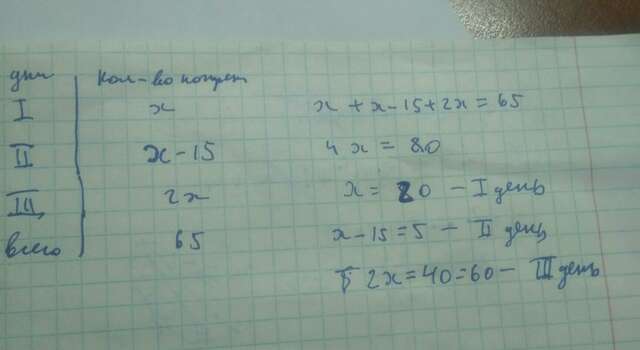 дни Кол-во конфет
I x x + x - 15 + 2x = 65
II x - 15 4x = 80
III 2x x = 20 - I день
всего 65 x - 15 = 5 - II день
2x = 40 = 60 - III день